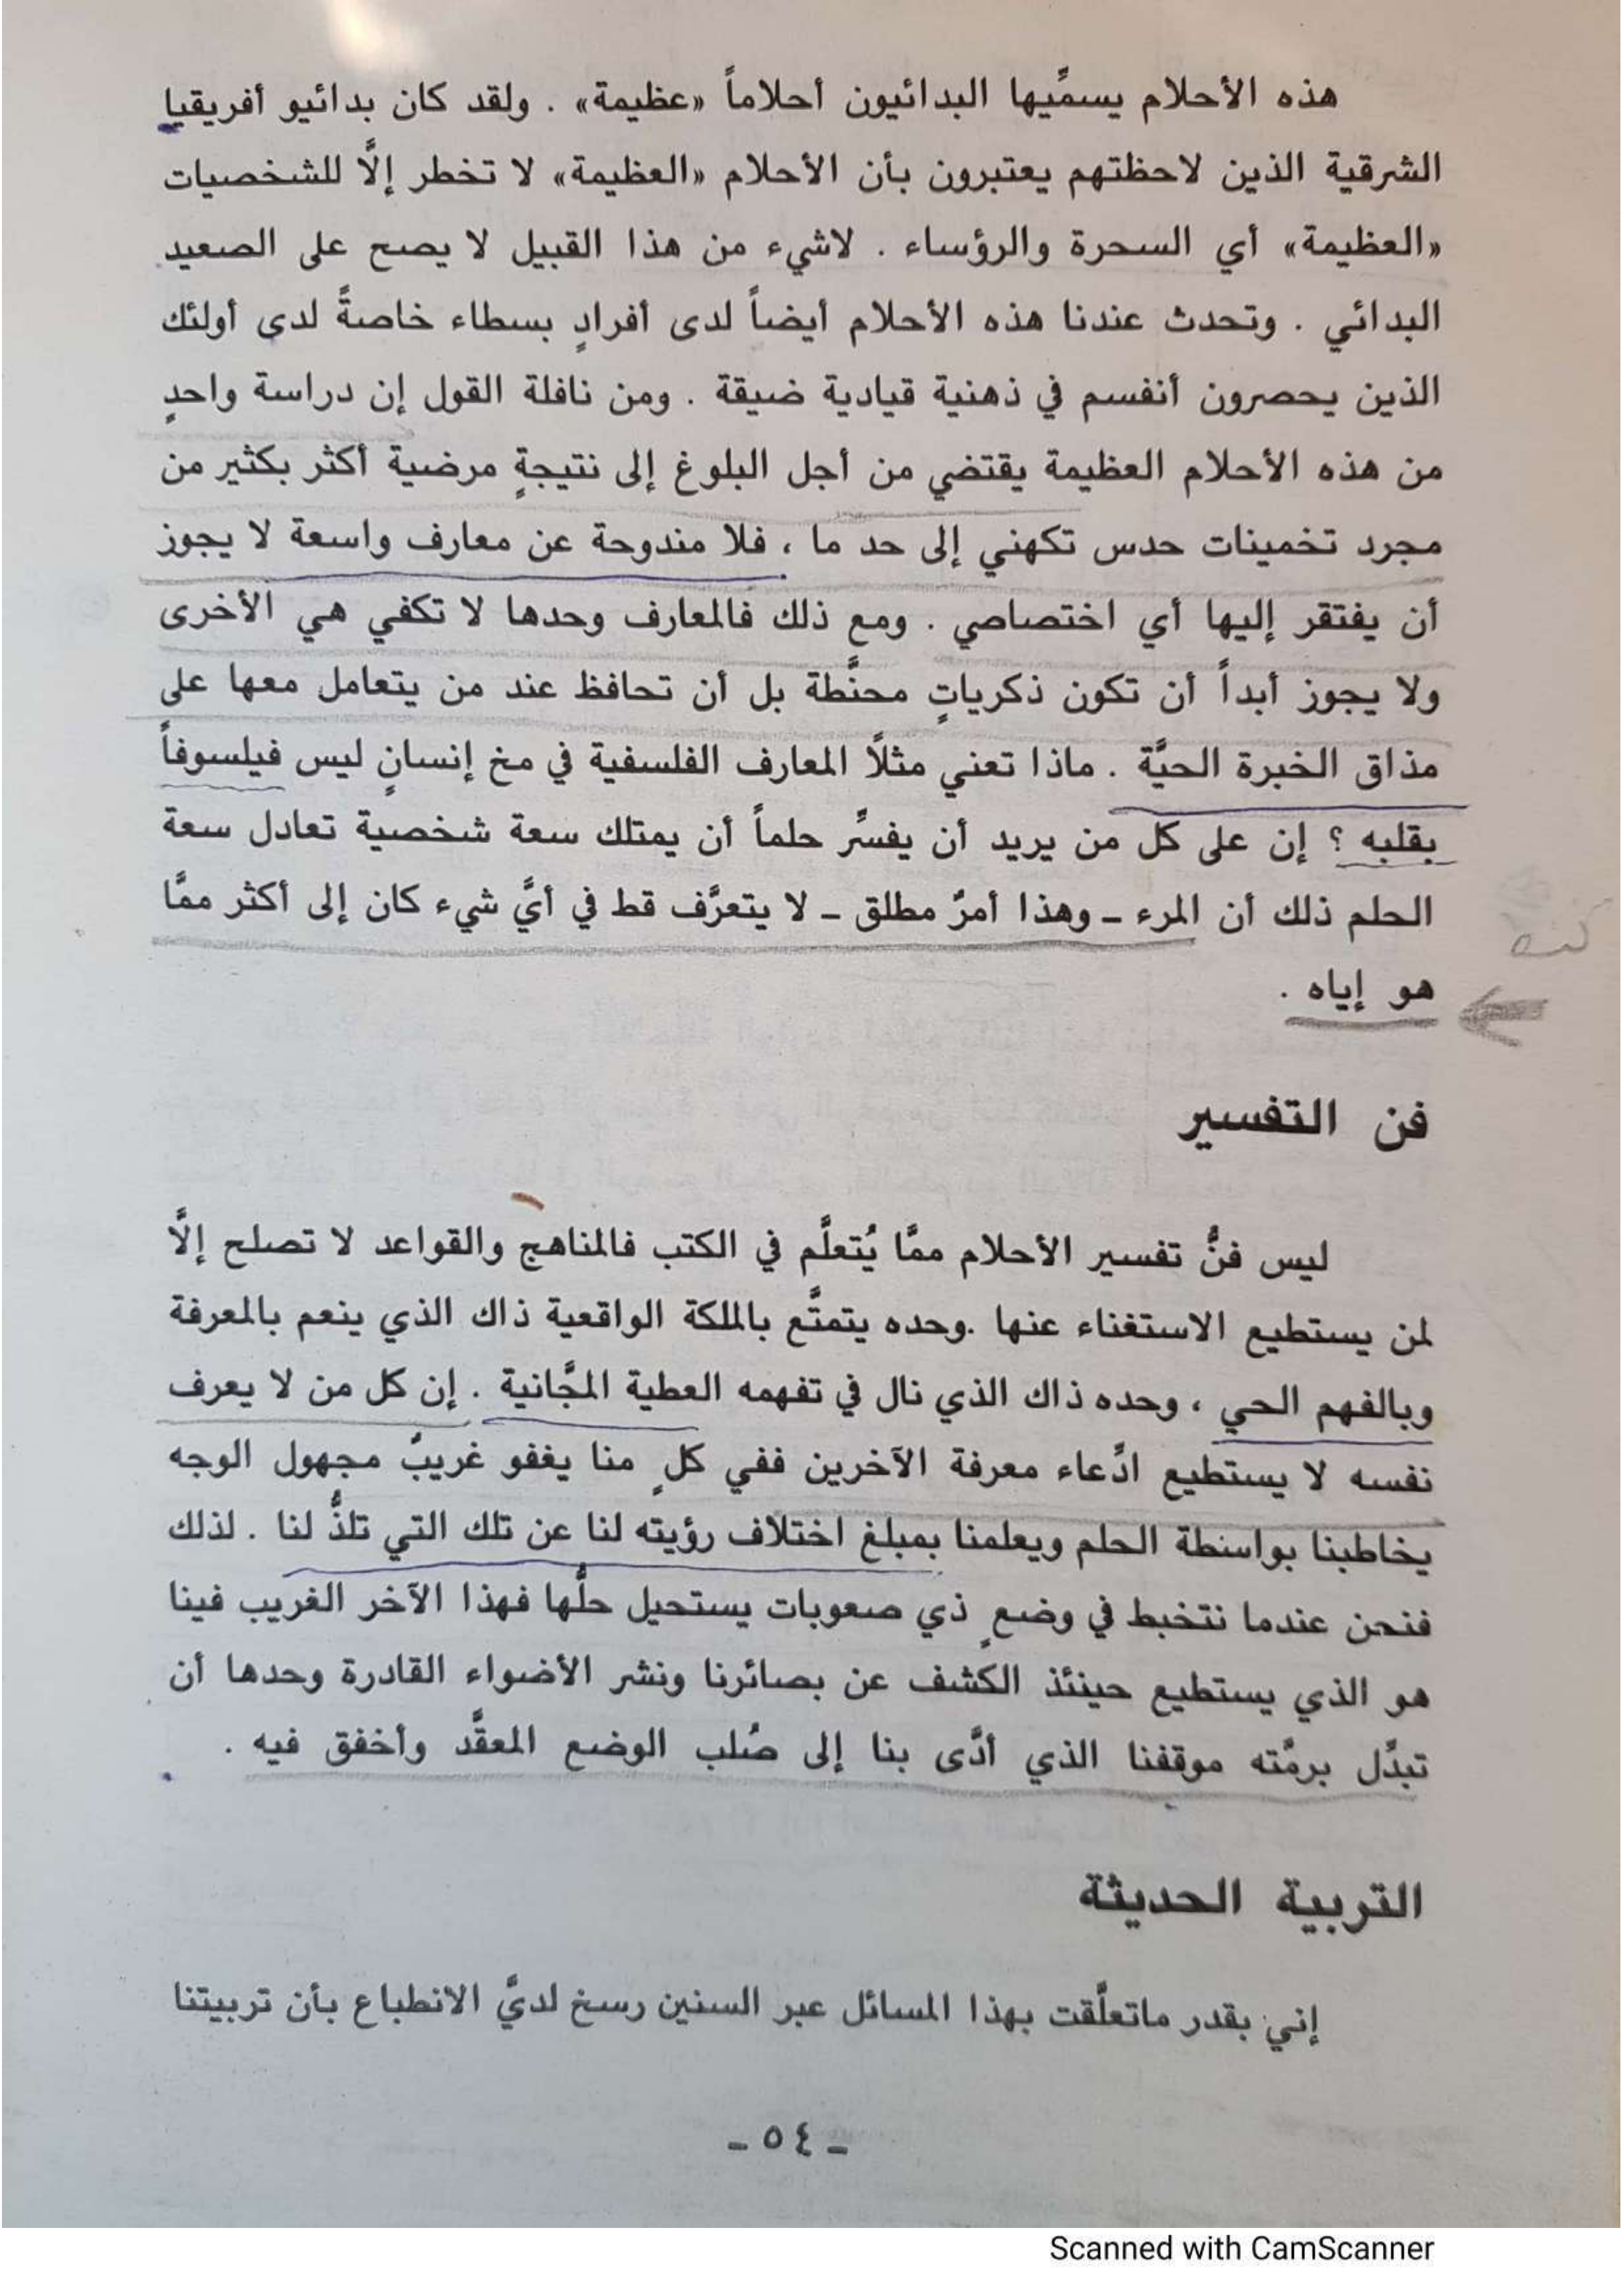 هذه الأحلام يسمِّيها البدائيون أحلاماً «عظيمة» . ولقد كان بدائيو أفريقيا
الشرقية الذين لاحظتهم يعتبرون بأن الأحلام «العظيمة» لا تخطر إلَّا للشخصيات
«العظيمة» أي السحرة والرؤساء . لاشيء من هذا القبيل لا يصح على الصعيد
البدائي . وتحدث عندنا هذه الأحلام أيضاً لدى أفرادٍ بسطاء خاصةً لدى أولئك
الذين يحصرون أنفسم في ذهنية قيادية ضيقة . ومن نافلة القول إن دراسة واحدٍ
من هذه الأحلام العظيمة يقتضي من أجل البلوغ إلى نتيجةٍ مرضية أكثر بكثير من
مجرد تخمينات حدس تكهني إلى حد ما ، فلا مندوحة عن معارف واسعة لا يجوز
أن يفتقر إليها أي اختصاصي . ومع ذلك فالمعارف وحدها لا تكفي هي الأخرى
ولا يجوز أبداً أن تكون ذكرياتٍ محنَّطة بل أن تحافظ عند من يتعامل معها على
مذاق الخبرة الحيَّة . ماذا تعني مثلًا المعارف الفلسفية في مخ إنسانٍ ليس فيلسوفاً
بقلبه ؟ إن على كل من يريد أن يفسِّر حلماً أن يمتلك سعة شخصية تعادل سعة
الحلم ذلك أن المرء ـ وهذا أمرٌ مطلق ـ لا يتعرَّف قط في أيَّ شيء كان إلى أكثر ممَّا
هو إياه .
فن التفسير
ليس فنُّ تفسير الأحلام ممَّا يُتعلَّم في الكتب فالمناهج والقواعد لا تصلح إلَّا
لمن يستطيع الاستغناء عنها .وحده يتمتَّع بالملكة الواقعية ذاك الذي ينعم بالمعرفة
وبالفهم الحي ، وحده ذاك الذي نال في تفهمه العطية المجَّانية . إن كل من لا يعرف
نفسه لا يستطيع ادِّعاء معرفة الآخرين ففي كلٍ منا يغفو غريبٌ مجهول الوجه
يخاطبنا بواسطة الحلم ويعلمنا بمبلغ اختلاف رؤيته لنا عن تلك التي تلذُّ لنا . لذلك
فنحن عندما نتخبط في وضعٍ ذي صعوبات يستحيل حلَّها فهذا الآخر الغريب فينا
هو الذي يستطيع حينئذ الكشف عن بصائرنا ونشر الأضواء القادرة وحدها أن
تبدِّل برمَّته موقفنا الذي أدَّى بنا إلى صُلب الوضع المعقَّد وأخفق فيه .
التربية الحديثة
إني بقدر ماتعلَّقت بهذا المسائل عبر السنين رسخ لديَّ الانطباع بأن تربيتنا
ـ ٥٤ ـ
Scanned with CamScanner